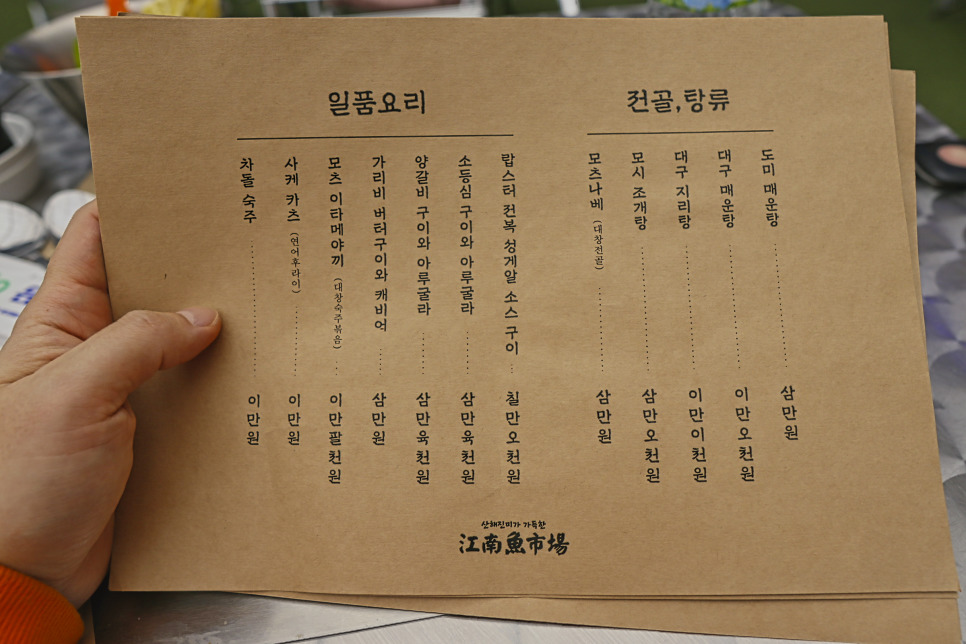 전골,탕류
도미 매운탕 삼만원
대구 매운탕 이만오천원
대구 지리탕 이만이천원
모시 조개탕 삼만오천원
모츠나베 (대창전골) 삼만원
일품요리
랍스터 전복 성게알 소스 구이 칠만오천원
소등심 구이와 아루굴라 삼만육천원
양갈비 구이와 아루굴라 삼만육천원
가리비 버터구이와 캐비어 삼만원
모츠 이타메야끼 (대창숙주볶음) 이만팔천원
사케 카츠 (연어후라이) 이만원
차돌 숙주 이만원
산해진미가 가득한
江南魚市場